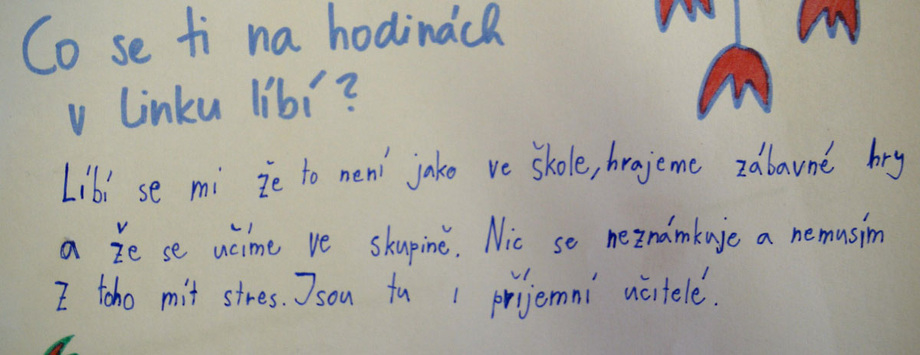 Co se ti na hodinách
v Linku líbí?
Líbí se mi že to není jako ve škole, hrajeme zábavné hry
a že se učíme ve skupině. Nic se neznámkuje a nemusím
z toho mít stres. Jsou tu i příjemní učitelé.